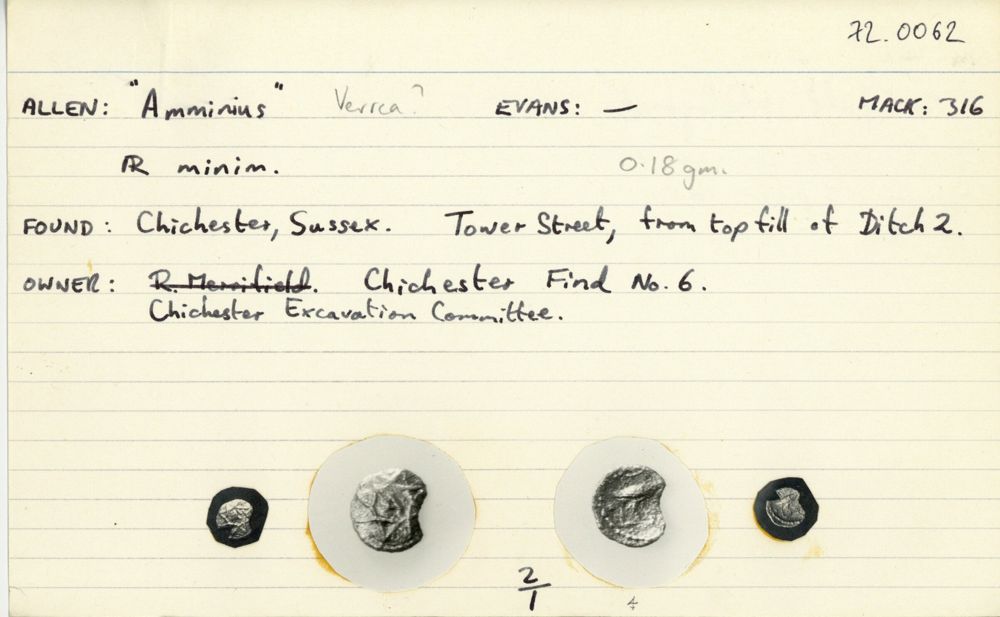 72.0062
ALLEN: "Amminius" Verica? EVANS: — MACK: 316
AR minim. 0.18gm.
FOUND: Chichester, Sussex. Tower Street, from top fill of Ditch 2.
OWNER: R. Merrifield. Chichester Find No. 6.
Chichester Excavation Committee.
2/1
4